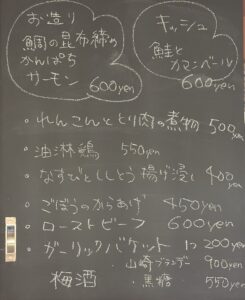 お造り
鯛の昆布締め
かんぱち
サーモン 600yen
キッシュ
鮭と
カマンベール
600yen
・れんこんととり肉の煮物 500yen
・油淋鶏 550yen
・なすびとししとう揚げ浸し 400yen
・ごぼうのからあげ 450yen
・ローストビーフ 600yen
・ガーリックバケット 1コ 200yen
梅酒 山崎ブランデー 900yen
・黒糖 550yen